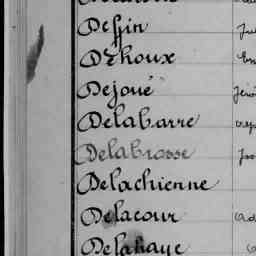 Deffin
Dehoux
Dejoué
Delabarre
Delabrosse
Delachienne
Delacour
Delahaye